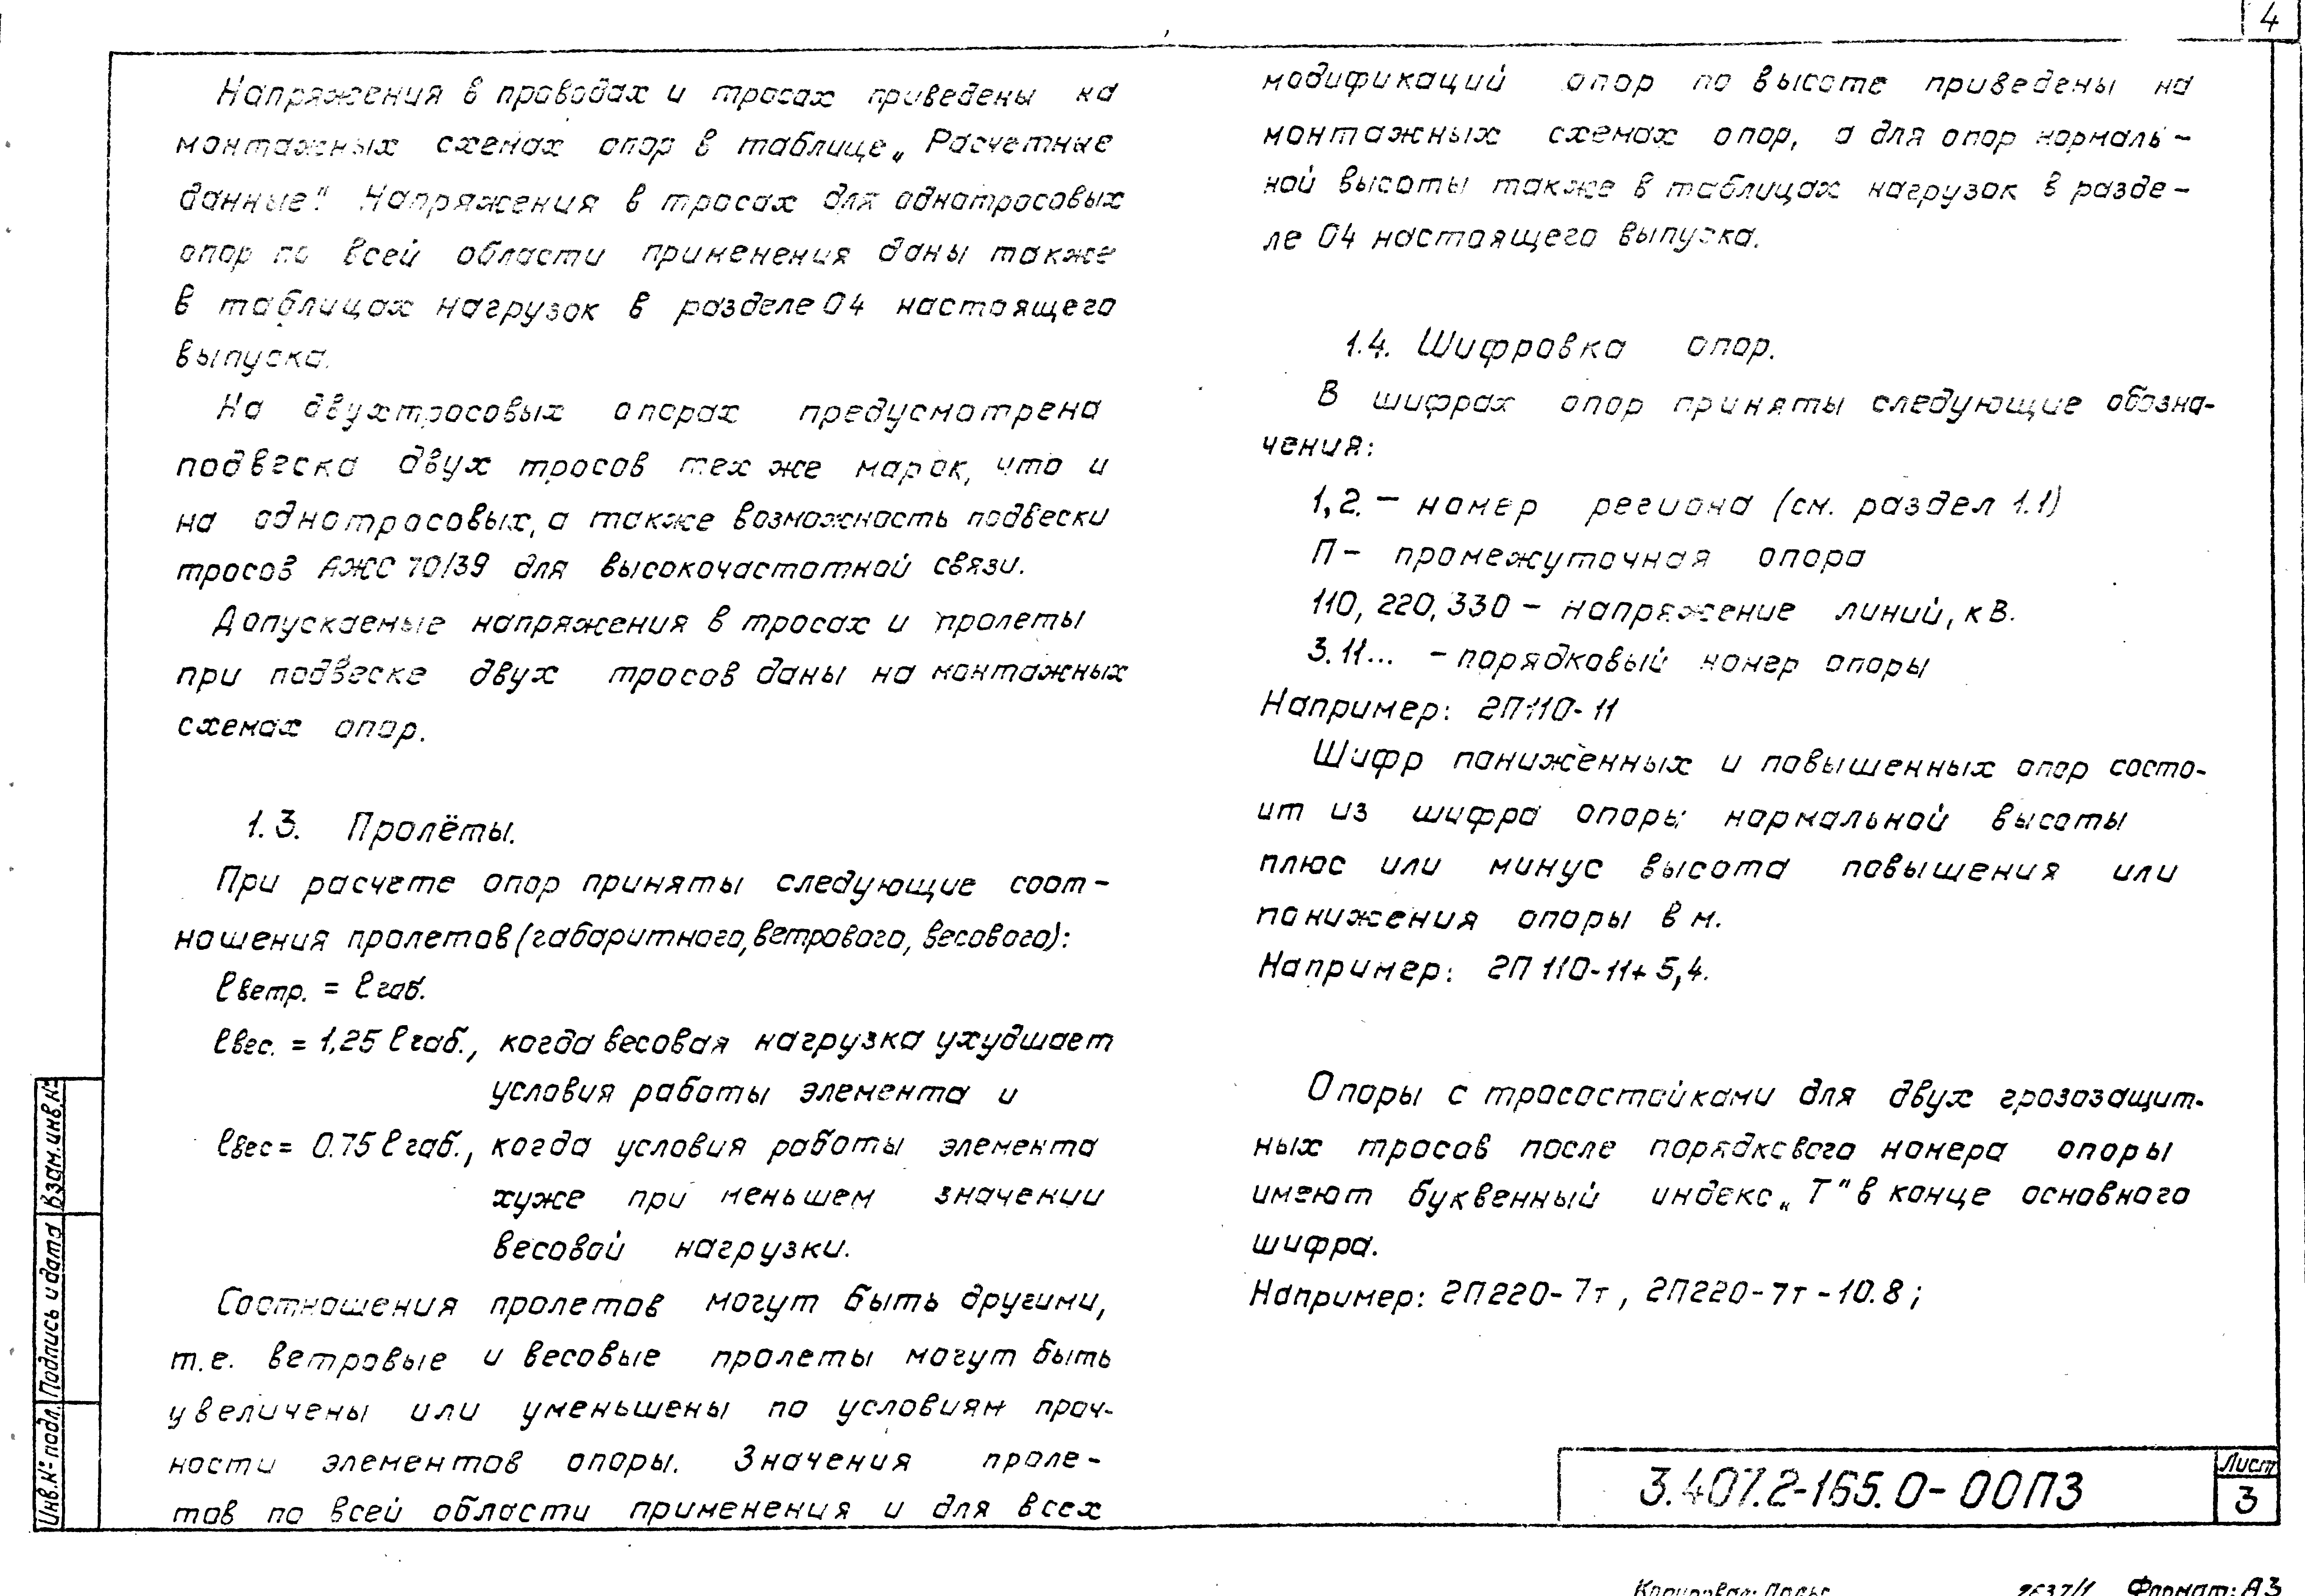 4
Напряжения в проводах и тросах приведены на
монтажных схемах опор в таблице „Расчетные
данные". Напряжения в тросах для однотросовых
опор по всей области применения даны также
в таблицах нагрузок в разделе 04 настоящего
выпуска.
На двухтросовых опорах предусмотрена
подвеска двух тросов тех же марок, что и
на однотросовых, а также возможность подвески
тросов АЖС 70/39 для высокочастотной связи.
Допускаемые напряжения в тросах и пролеты
при подвеске двух тросов даны на монтажных
схемах опор.
1.3. Пролёты.
При расчете опор приняты следующие соот-
ношения пролетов (габаритного, ветрового, весового):
ℓветр. = ℓгаб.
ℓвес. = 1,25 ℓгаб., когда весовая нагрузка ухудшает
условия работы элемента и
ℓвес = 0.75 ℓгаб., когда условия работы элемента
хуже при меньшем значении
весовой нагрузки.
Соотношения пролетов могут быть другими,
т.е. ветровые и весовые пролеты могут быть
увеличены или уменьшены по условиям проч-
ности элементов опоры. Значения проле-
тов по всей области применения и для всех
модификаций опор по высоте приведены на
монтажных схемах опор, а для опор нормаль-
ной высоты также в таблицах нагрузок в разде-
ле 04 настоящего выпуска.
1.4. Шифровка опор.
В шифрах опор приняты следующие обозна-
чения:
1,2. – номер региона (см. раздел 1.1)
П – промежуточная опора
110, 220, 330 – напряжение линий, кВ.
3.11... – порядковый номер опоры
Например: 2П110-11
Шифр пониженных и повышенных опор состо-
ит из шифра опоры нормальной высоты
плюс или минус высота повышения или
понижения опоры в м.
Например: 2П110-11+5,4.
Опоры с тросостойками для двух грозозащит-
ных тросов после порядкового номера опоры
имеют буквенный индекс „Т" в конце основного
шифра.
Например: 2П220-7т, 2П220-7т-10.8;
Взам.инв.№
Подпись и дата
Инв.№ подл.
3.407.2-165.0-00ПЗ
Лист
3
Копировал:
Формат: А3